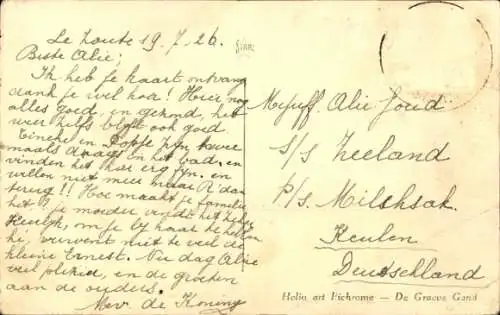 Le Zoute 19.7.26.
Beste Alie;
Ik heb je kaart ontvang
dank je wel hoor! Hier nog
alles goed, en gezond, het
weer zelfs blijft ook goed
Eineke en Poppe zijn twee
maals daags in het bad, en
vinden het hier erg fijn, en
willen niet meer naar R'dam
terug!! Hoe maakt je familie
het? je moeder vindt het zeker
heerlijk, om je bij haar te hebben
hè, verwent niet te veel de
kleine Ernest. Nu dag Alie
veel plezier, en de groeten
aan de ouders.
Mev. de Koning
Mejuff. Alie
s/s Zeeland
p/s. Milchsak.
Keulen
Deutschland
Helio art Pichrome — De Graeve Gand